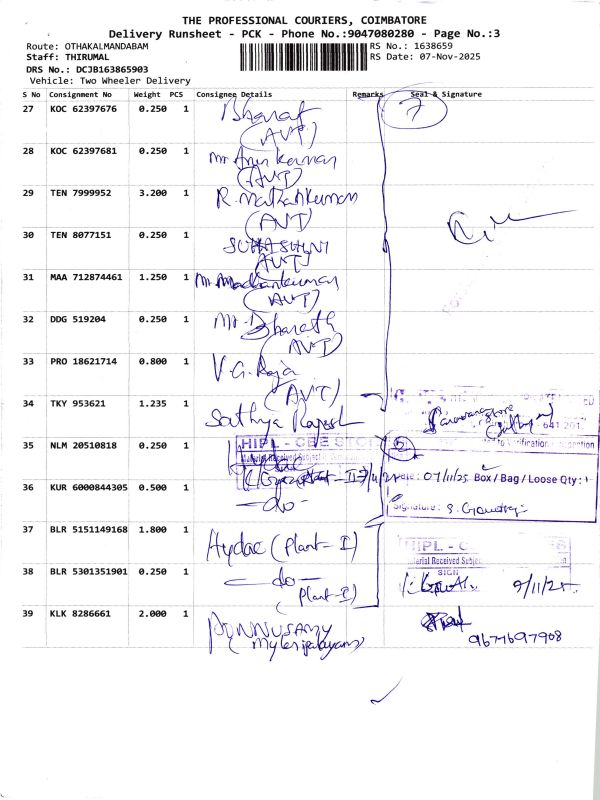 THE PROFESSIONAL COURIERS, COIMBATORE
Delivery Runsheet - PCK - Phone No.:9047080280 - Page No.:3
Route: OTHAKALMANDABAM
RS No.: 1638659
Staff: THIRUMAL
RS Date: 07-Nov-2025
DRS No.: DCJB163865903
Vehicle: Two Wheeler Delivery
S No Consignment No Weight PCS Consignee Details Remarks Seal & Signature
27 KOC 62397676 0.250 1 Bharat
(AVT)
7
28 KOC 62397681 0.250 1 Mr Arun kumar
(AVT)
29 TEN 7999952 3.200 1 R. Mathankumar
(AVT)
30 TEN 8077151 0.250 1 SUHASHINI
AVT)
31 MAA 712874461 1.250 1 Mr. Madhankumar
(AVT)
32 DDG 519204 0.250 1 Mr. Bharath
(AVT)
33 PRO 18621714 0.800 1 V.G. Raja
(AVT)
34 TKY 953621 1.235 1 Sathya Rajesh
641 201.
35 NLM 20510818 0.250 1
HIPL - CBE STO
Material Received Subject
to Verification
2
Plant - II
Date: 07/11/25 Box / Bag / Loose Qty: 1
36 KUR 6000844305 0.500 1 -do-
Signature: S. Gowtham
37 BLR 5151149168 1.800 1 Hydac (Plant-I)
HIPL - C
Material Received Subject
SIGN
38 BLR 5301351901 0.250 1 -do-
(Plant-I)
9/11/25
39 KLK 8286661 2.000 1 PONNUSAMY
(Myleripalayam)
9677697908